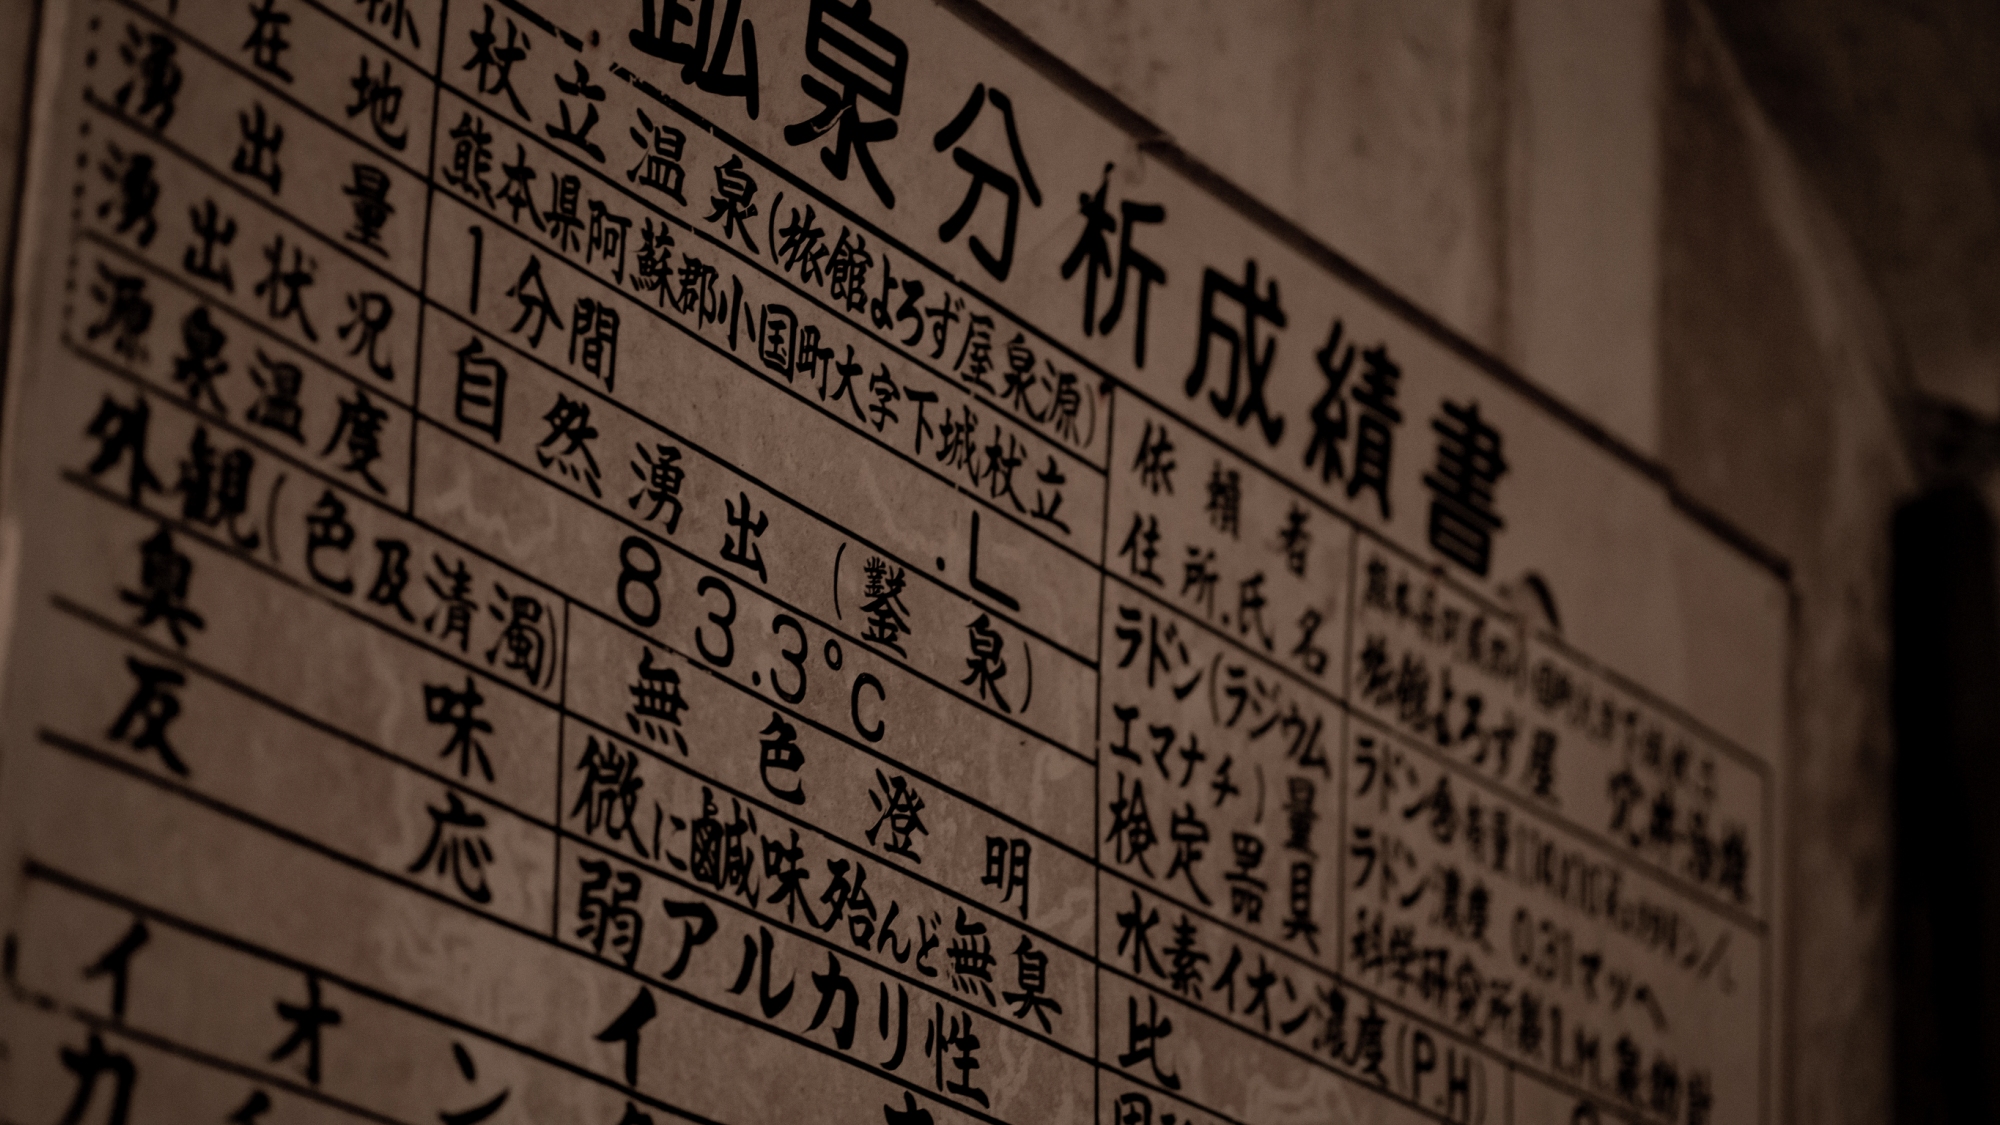 鉱泉分析成績書
杖立温泉(旅館よろず屋泉源)
在地 熊本県阿蘇郡小国町大字下城杖立
湧出量 1分間 .L
湧出状況 自然湧出(鑿泉)
源泉温度 83.3°C
外観(色及清濁) 無色澄明
臭味 微に鹹味殆んど無臭
反応 弱アルカリ性
イオン イ
カ
依頼者
住所.氏名
旅館よろず屋
ラドン(ラジウム
エマナチ)量
検定器具
ラドン含有量
ラドン濃度 0.31マッヘ
科学研究所製I.M.
水素イオン濃度(P.H)
比